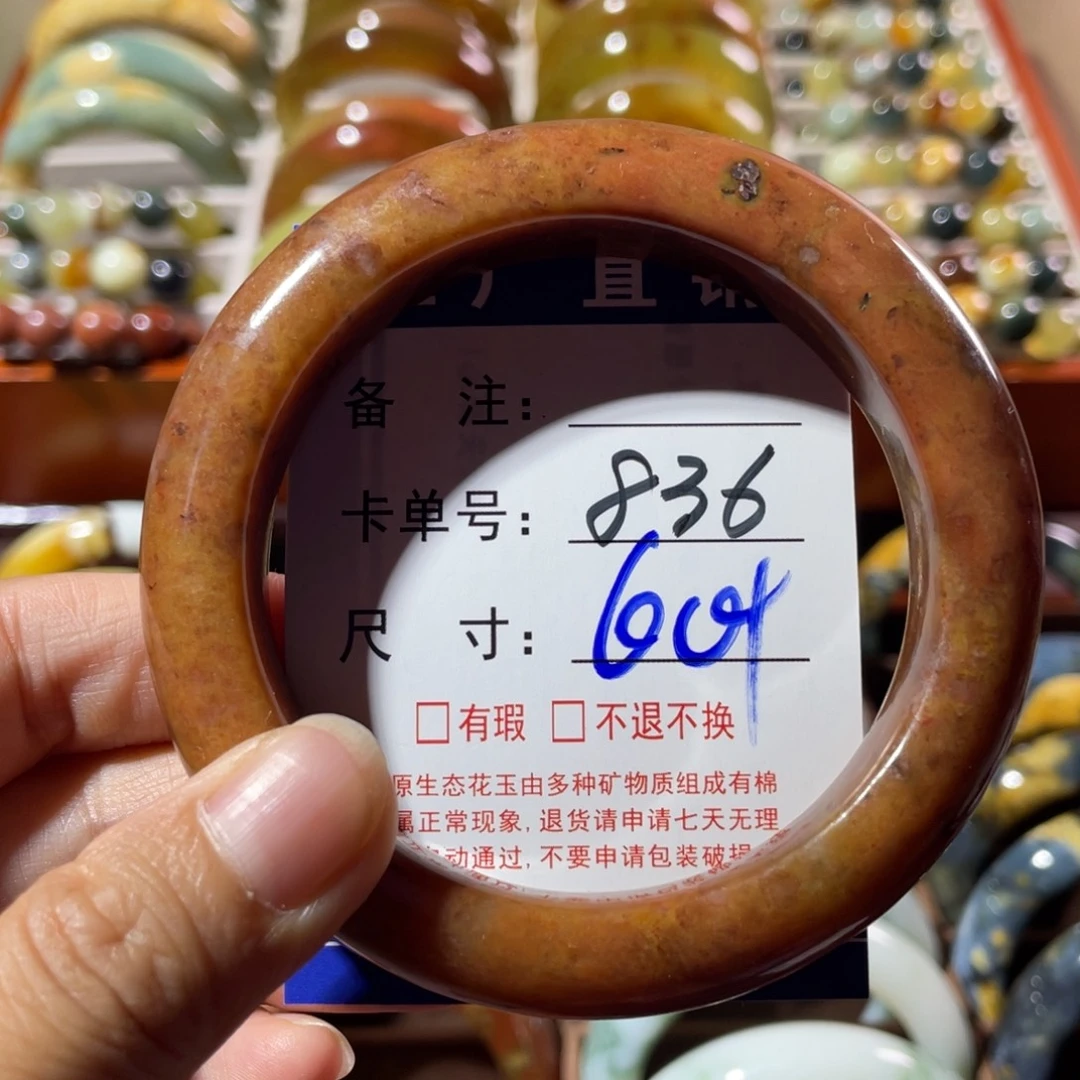 厂 直 销
备 注：
卡单号：836
尺 寸：604
□有瑕 □不退不换
原生态花玉由多种矿物质组成有棉
属正常现象，退货请申请七天无理
动通过，不要申请包装破损